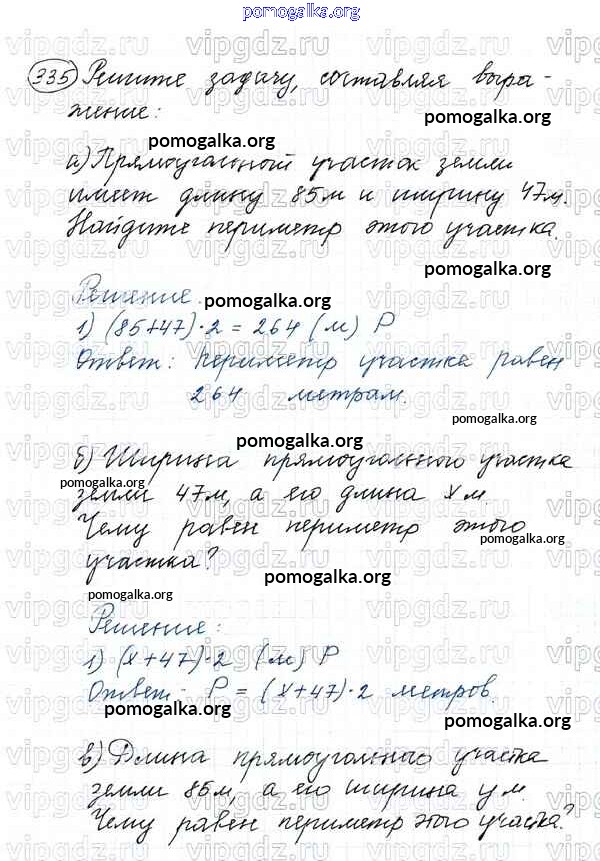 pomogalka.org
335 Решите задачу, составляя выра-
жение:
pomogalka.org
а) Прямоугольный участок земли
имеет длину 85м и ширину 47м.
Найдите периметр этого участка.
pomogalka.org
Решение.
pomogalka.org
1) (85+47)·2 = 264 (м) P
Ответ: периметр участка равен
264 метрам.
pomogalka.org
pomogalka.org
б) Ширина прямоугольного участка
pomogalka.org
земли 47м, а его длина x м.
Чему равен периметр этого
pomogalka.org
участка?
pomogalka.org
Решение:
1) (x+47)·2 (м) P
Ответ: P = (x+47)·2 метров.
pomogalka.org
pomogalka.org
в) Длина прямоугольного участка
земли 85м, а его ширина y м.
Чему равен периметр этого участка?
vipgdz.ru